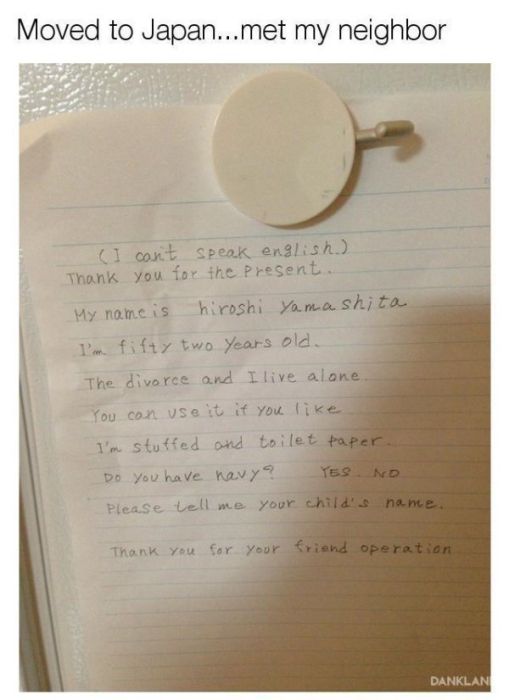 Moved to Japan...met my neighbor
(I can't speak english.)
Thank you for the present.
My name is hiroshi Yamashita
I'm fifty two years old.
The divorce and I live alone.
You can use it if you like
I'm stuffed and toilet paper.
Do you have navy? YES. NO
Please tell me your child's name.
Thank you for your friend operation
DANKLAN